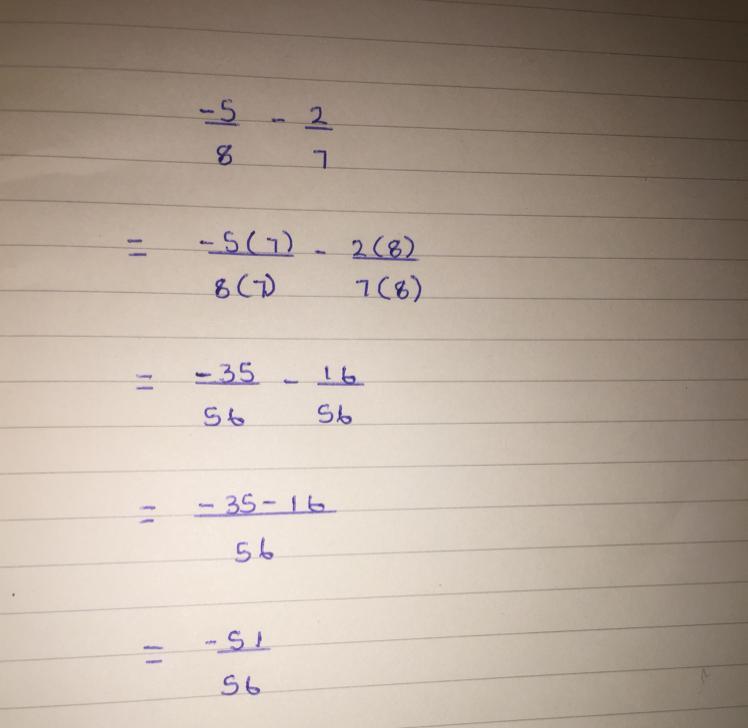 -5/8 - 2/7
= -5(7)/8(7) - 2(8)/7(8)
= -35/56 - 16/56
= -35-16/56
= -51/56